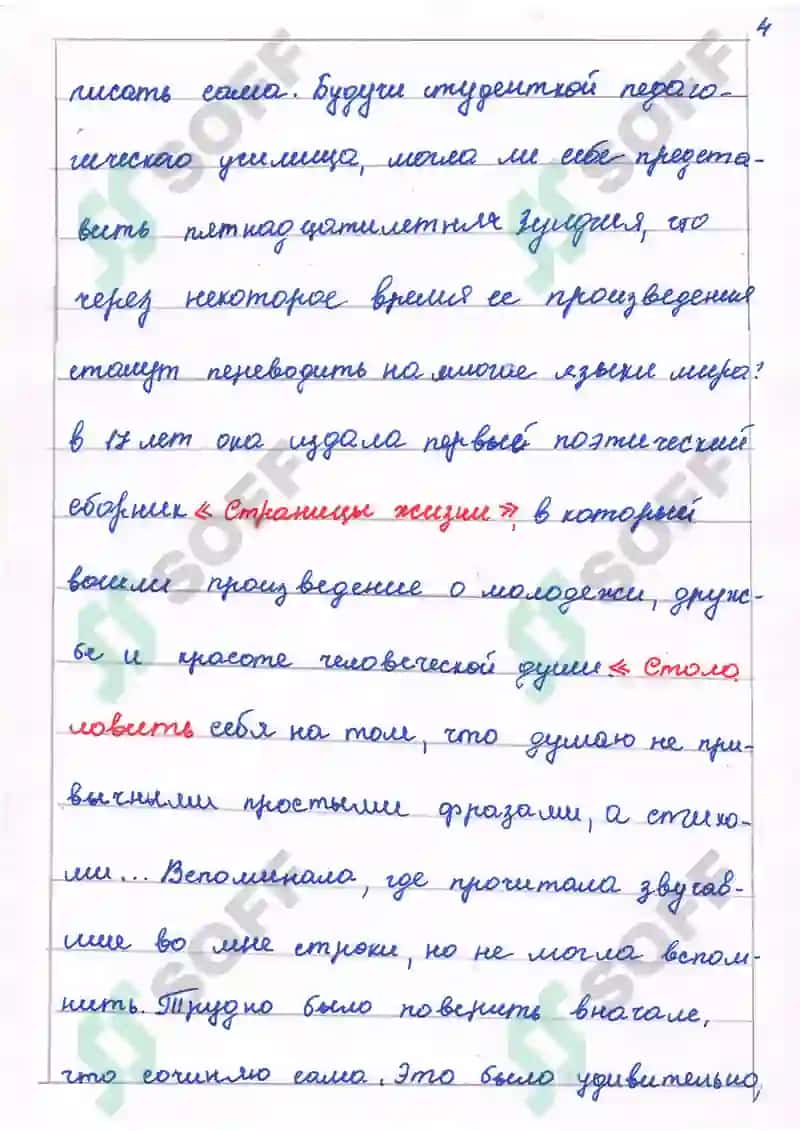 4
писать сама. Будучи студенткой педаго-
гического училища, могла ли себе предста-
вить пятнадцатилетняя Зулфия, что
через некоторое время ее произведения
станут переводить на многие языки мира?
В 17 лет она издала первый поэтический
сборник «Страницы жизни», в который
вошли произведение о молодежи, друж-
бе и красоте человеческой души. «Стала
ловить себя на том, что думаю не при-
вычными простыми фразами, а стиха-
ми... Вспоминала, где прочитала звучав-
шие во мне строки, но не могла вспом-
нить. Трудно было поверить вначале,
что сочиняю сама. Это было удивительно,
SOFF
SOFF
SOFF
SOFF
SOFF
SOFF